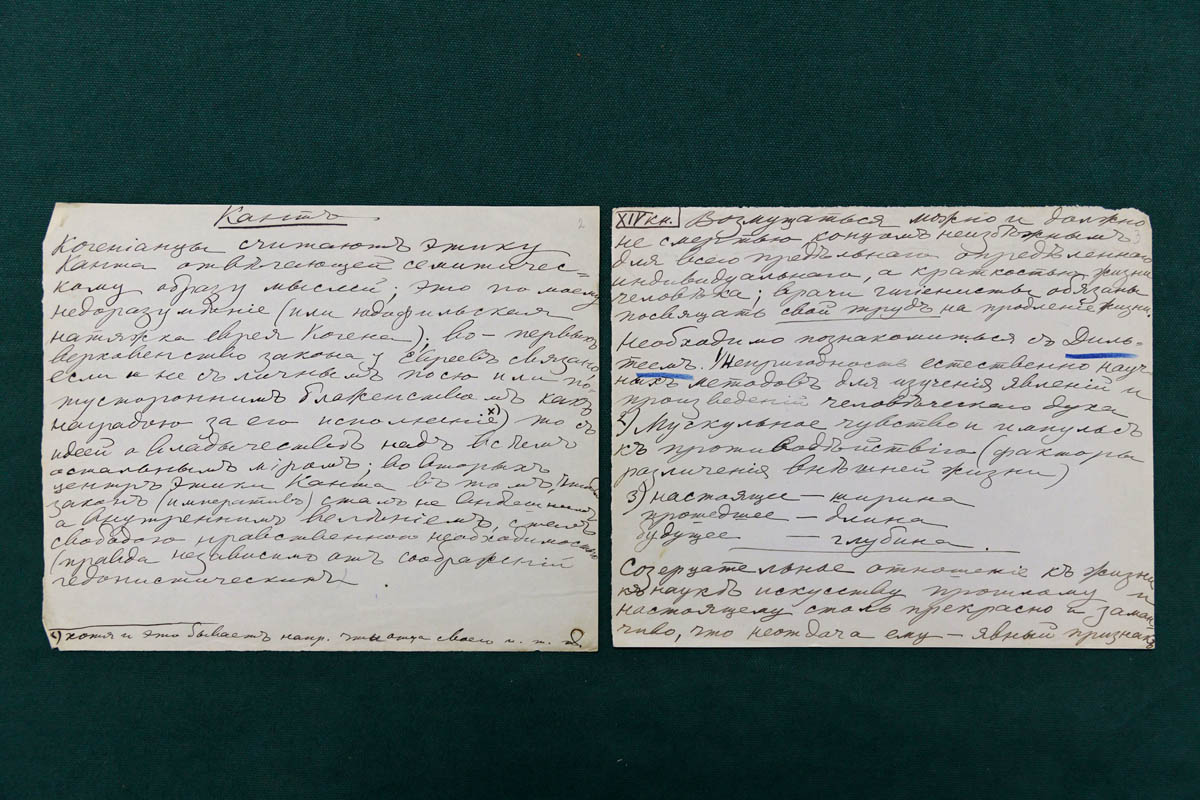 Кантъ
2
Когеніанцы считаютъ этику
Канта отвѣчающей семитичес-
кому образу мыслей; это по моему
недоразумѣніе (или юдофильская
натяжка еврея Когена), во-первыхъ
верховенство закона у Евреевъ связано
если и не съ личнымъ или по-
тустороннимъ блаженствомъ какъ
наградою за его исполненіе х) то съ
идеей о владычествѣ надъ всѣмъ
остальнымъ міромъ; во вторыхъ
центръ этики Канта въ томъ, чтобы
законъ (императивъ) сталъ не внѣшнимъ
а внутреннимъ велѣніемъ, съ
свободою нравственною необходимостью
(правда независимо отъ соображеній
гедонистическихъ
х) хотя и это бываетъ напр. чти отца своего и. т. д.
XIV кн. Возмущаться можно и должно
не смертью концомъ неизбѣжнымъ
для всего предѣльнаго опредѣленнаго
индивидуальнаго, а краткостью жизни
человѣка; врачи гигіенисты обязаны
посвящать свой трудъ на продленіе жизни.
Необходимо познакомиться съ Диль-
теемъ. 1) Непригодность естественно науч-
ныхъ методовъ для изученія явленій и
произведеній человѣческаго духа
2) Мускульное чувство и импульсъ
къ противодѣйствію (факторы
различенія внѣшней жизни)
3) настоящее – ширина
прошедшее – длина
будущее – глубина.
Созерцательное отношеніе къ жизни
къ наукѣ искусству прошлому и
настоящему столь прекрасно и заман-
чиво, что неотдача ему – явный признакъ
3